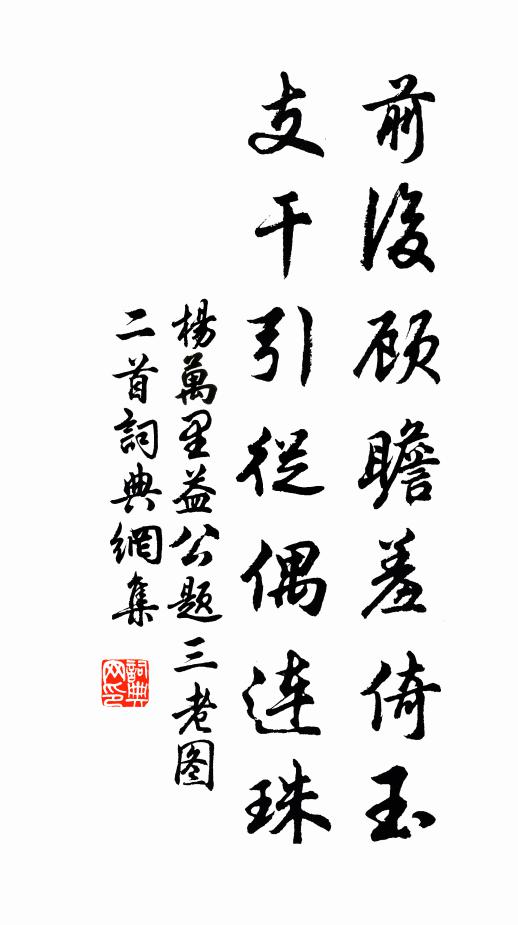 前後顾瞻羞倚玉
支干引從偶連珠
楊萬里益公題三老图
二首詞典網集
詞典
网印